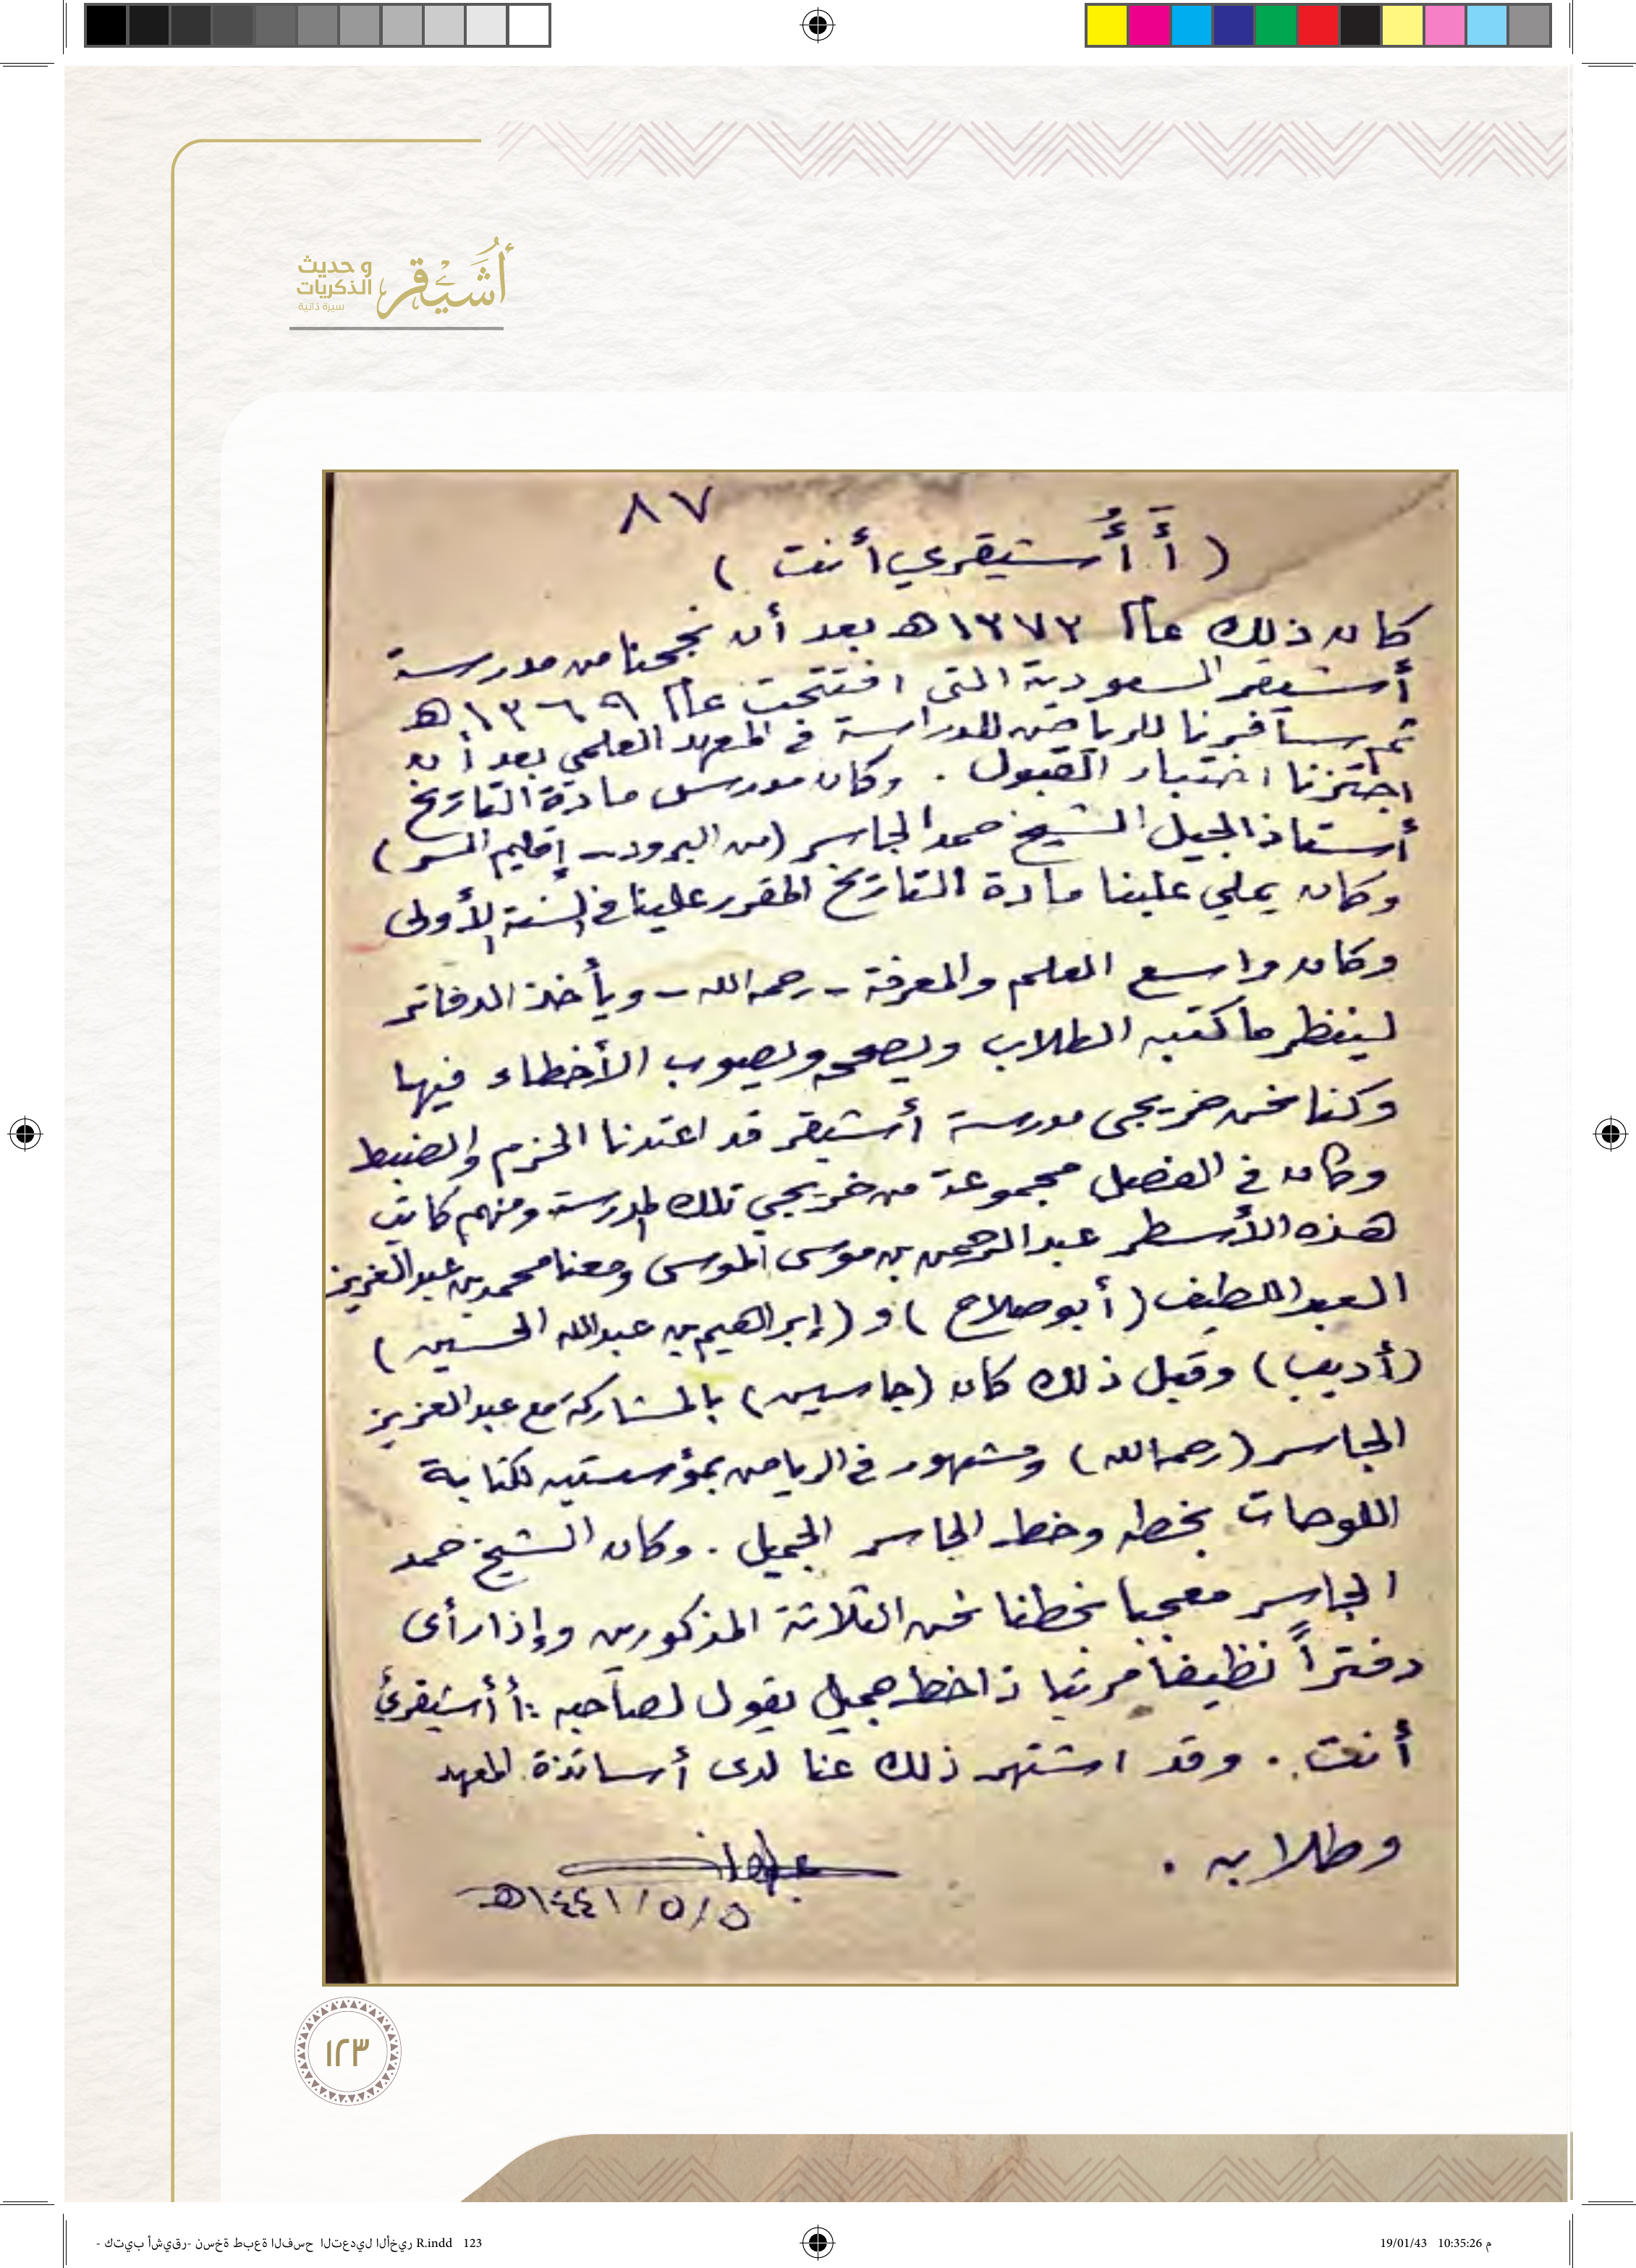 أُشَيْقر
و حديث
الذكريات
سيرة ذاتية
٨٧
( أَ أُشيقري أنت )
كان ذلك عام ١٣٧٣هـ بعد أن نجحنا من مدرسة
أشيقر السعودية التي افتتحت عام ١٣٦٩هـ
ثم سافرنا للرياض للدراسة في المعهد العلمي بعد أن
اجتزنا اختبار القبول . وكان مدرس مادة التاريخ
أستاذ الجيل الشيخ حمد الجاسر (من البرود - إقليم السر)
وكان يملي علينا مادة التاريخ المقرر علينا في السنة الأولى
وكان واسع العلم والمعرفة - رحمه الله - ويأخذ الدفاتر
لينظر ما كتبه الطلاب ويصححه ويصوب الأخطاء فيها
وكنا نحن خريجي مدرسة أشيقر قد اعتدنا الحزم والضبط
وكان في الفصل مجموعة من خريجي تلك المدرسة ومنهم كاتب
هذه الأسطر عبدالرحمن بن موسى الموسى ومعنا محمد بن عبدالعزيز
العبداللطيف (أبو صلاح) و (إبراهيم بن عبدالله الحسين)
(أديب) وقبل ذلك كان (جاسين) بالمشاركة مع عبدالعزيز
الجاسر (رحمه الله) ومشهور في الرياض بمؤسستيه لكتابة
اللوحات بخطه وخط الجاسر الجميل . وكان الشيخ حمد
الجاسر معجبا بخطنا نحن الثلاثة المذكورين وإذا رأى
دفتراً نظيفا مرتبا ذا خط جميل يقول لصاحبه : أ أشيقريٌ
أنت . وقد اشتهر ذلك عنا لدى أساتذة المعهد
وطلابه .
٥/٥/١٤٤١هـ
١٢٣
كتيب أشيقر- نسخة طبعة الفسح التعديل الأخير R.indd 123
19/01/43 10:35:26 م